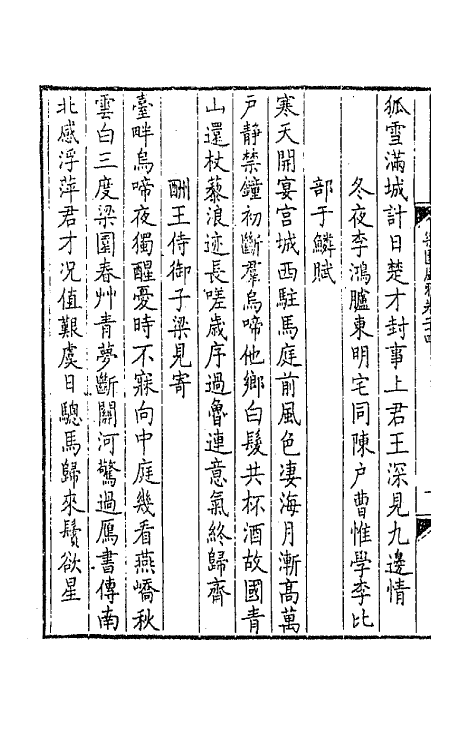 狐雪滿城計日楚才封事上君王深見九邊情
冬夜李鴻臚東明宅同陳户曹惟學李比
部于鱗賦
寒天開宴宫城西駐馬庭前風色凄海月漸髙萬
户靜禁鐘初斷羣烏啼他鄉白髮共杯酒故國青
山還杖藜浪迹長嗟歲序過魯連意氣終歸齊
酬王侍御子梁見寄
臺畔烏啼夜獨醒憂時不寐向中庭幾看燕嶠秋
雲白三度梁園春艸青夢斷關河驚過鴈書傳南
北感浮萍君才况值艱虞日驄馬歸來鬢欲星